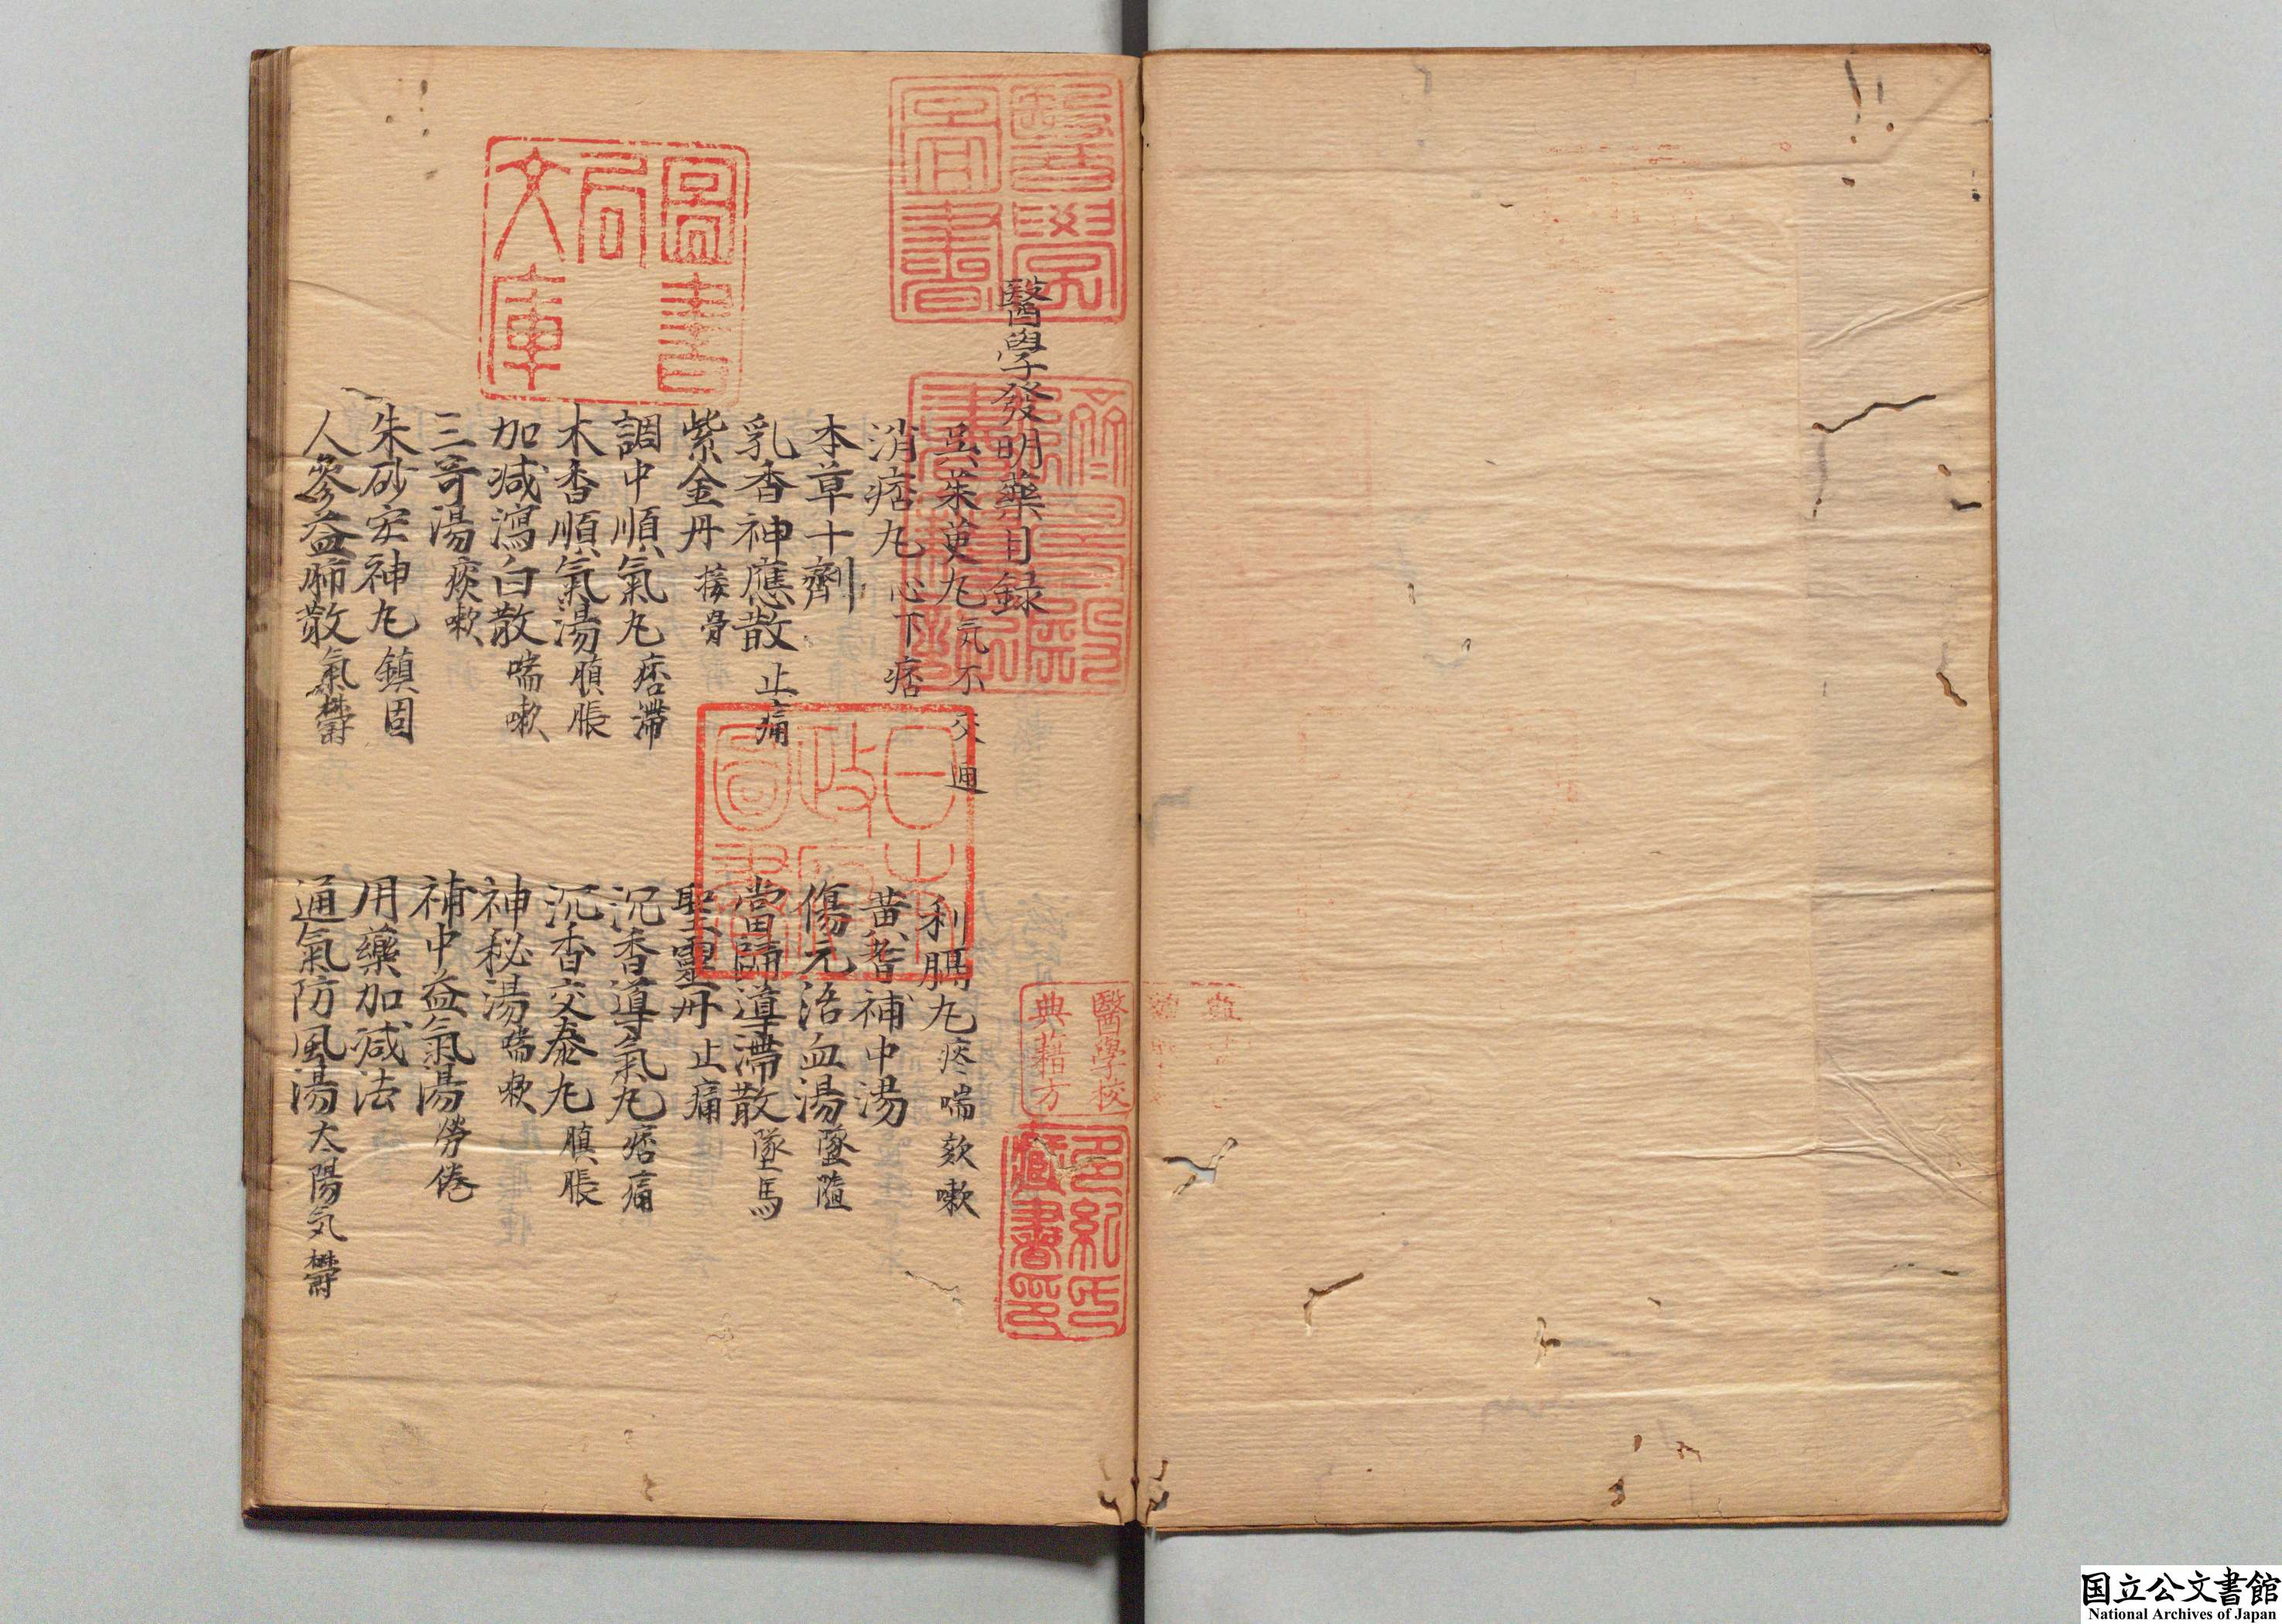 醫學發明藥目録
吳茱萸丸 気不交通
利膈丸 痰喘欬嗽
消痞丸 心下痞
黄耆補中湯
本草十劑
傷元活血湯 墜隨
乳香神應散 止痛
當歸導滯散 墜馬
紫金丹 接骨
聖靈丹 止痛
調中順氣丸 痞滯
沉香導氣丸 痞痛
木香順氣湯 䐜脹
沉香交泰丸 䐜脹
加减瀉白散 喘嗽
神秘湯 喘欬
三奇湯 痰嗽
補中益氣湯 勞倦
朱砂安神丸 鎮固
用藥加减法
人參益肺散 氣欝
通氣防風湯 太陽気欝
醫學圖書
圖書局文庫
日本政府圖書
醫學校典籍方
多紀氏藏書印
国立公文書館
National Archives of Japan